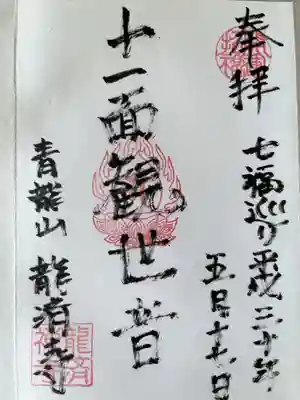 奉拝
七福巡り 平成三十年
五月十七日
十一面観世音
青龍山 龍済寺